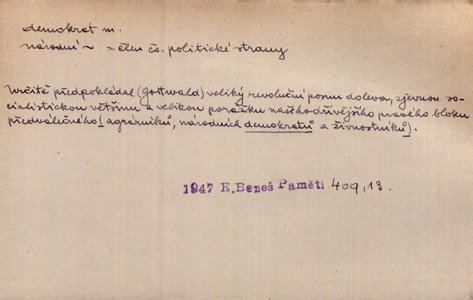 demokrat m.
národní ~ = člen čs. politické strany
Určitě předpokládal (Gottwald) veliký revoluční posun doleva, zjevnou so-
cialistickou většinu a velikou porážku našeho dřívějšího pravého bloku
předválečného [agrárníků, národních demokratů a živnostníků].
1947 E. Beneš Paměti 409,13.